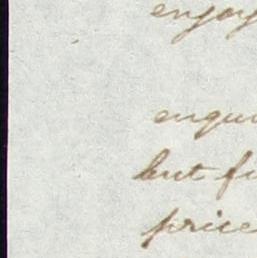 enjoy
enqui
but fi
price